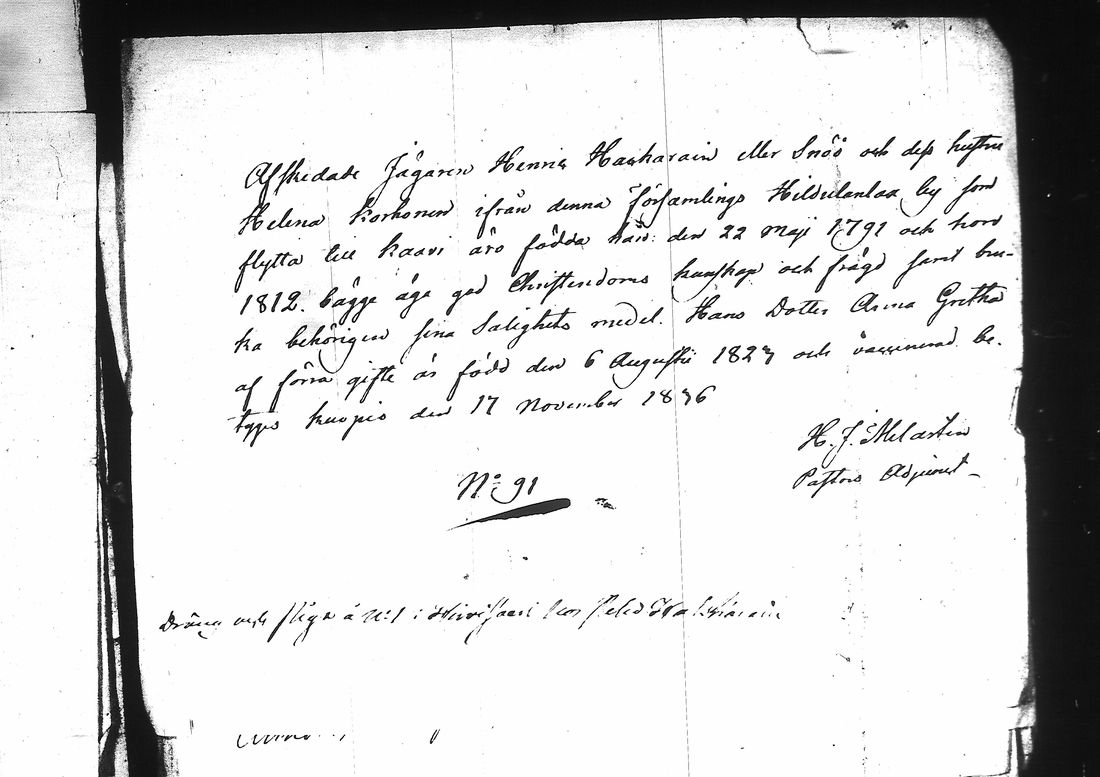 Afskedade Jägaren Henric Haukarain eller Snöö och dess hustru
Helena Korhonen ifrån denna församlings Hildulanlax by som
flytta till Kaavi äro födda han: den 22 Maji 1791 och hon
1812. bägge äga god Christendoms kunskap och frägd samt bru-
ka behörigen sina Salighets medel. Hans Dotter Anna Gretha
af förra gifte är född den 6 Augusti 1827 och vaccinerad be-
tygas Kuopio den 17 November 1836
H. J. Melartin
Pastors Adjunct
No 91
Dräng och piga å No 1 i Hirvisaari hos